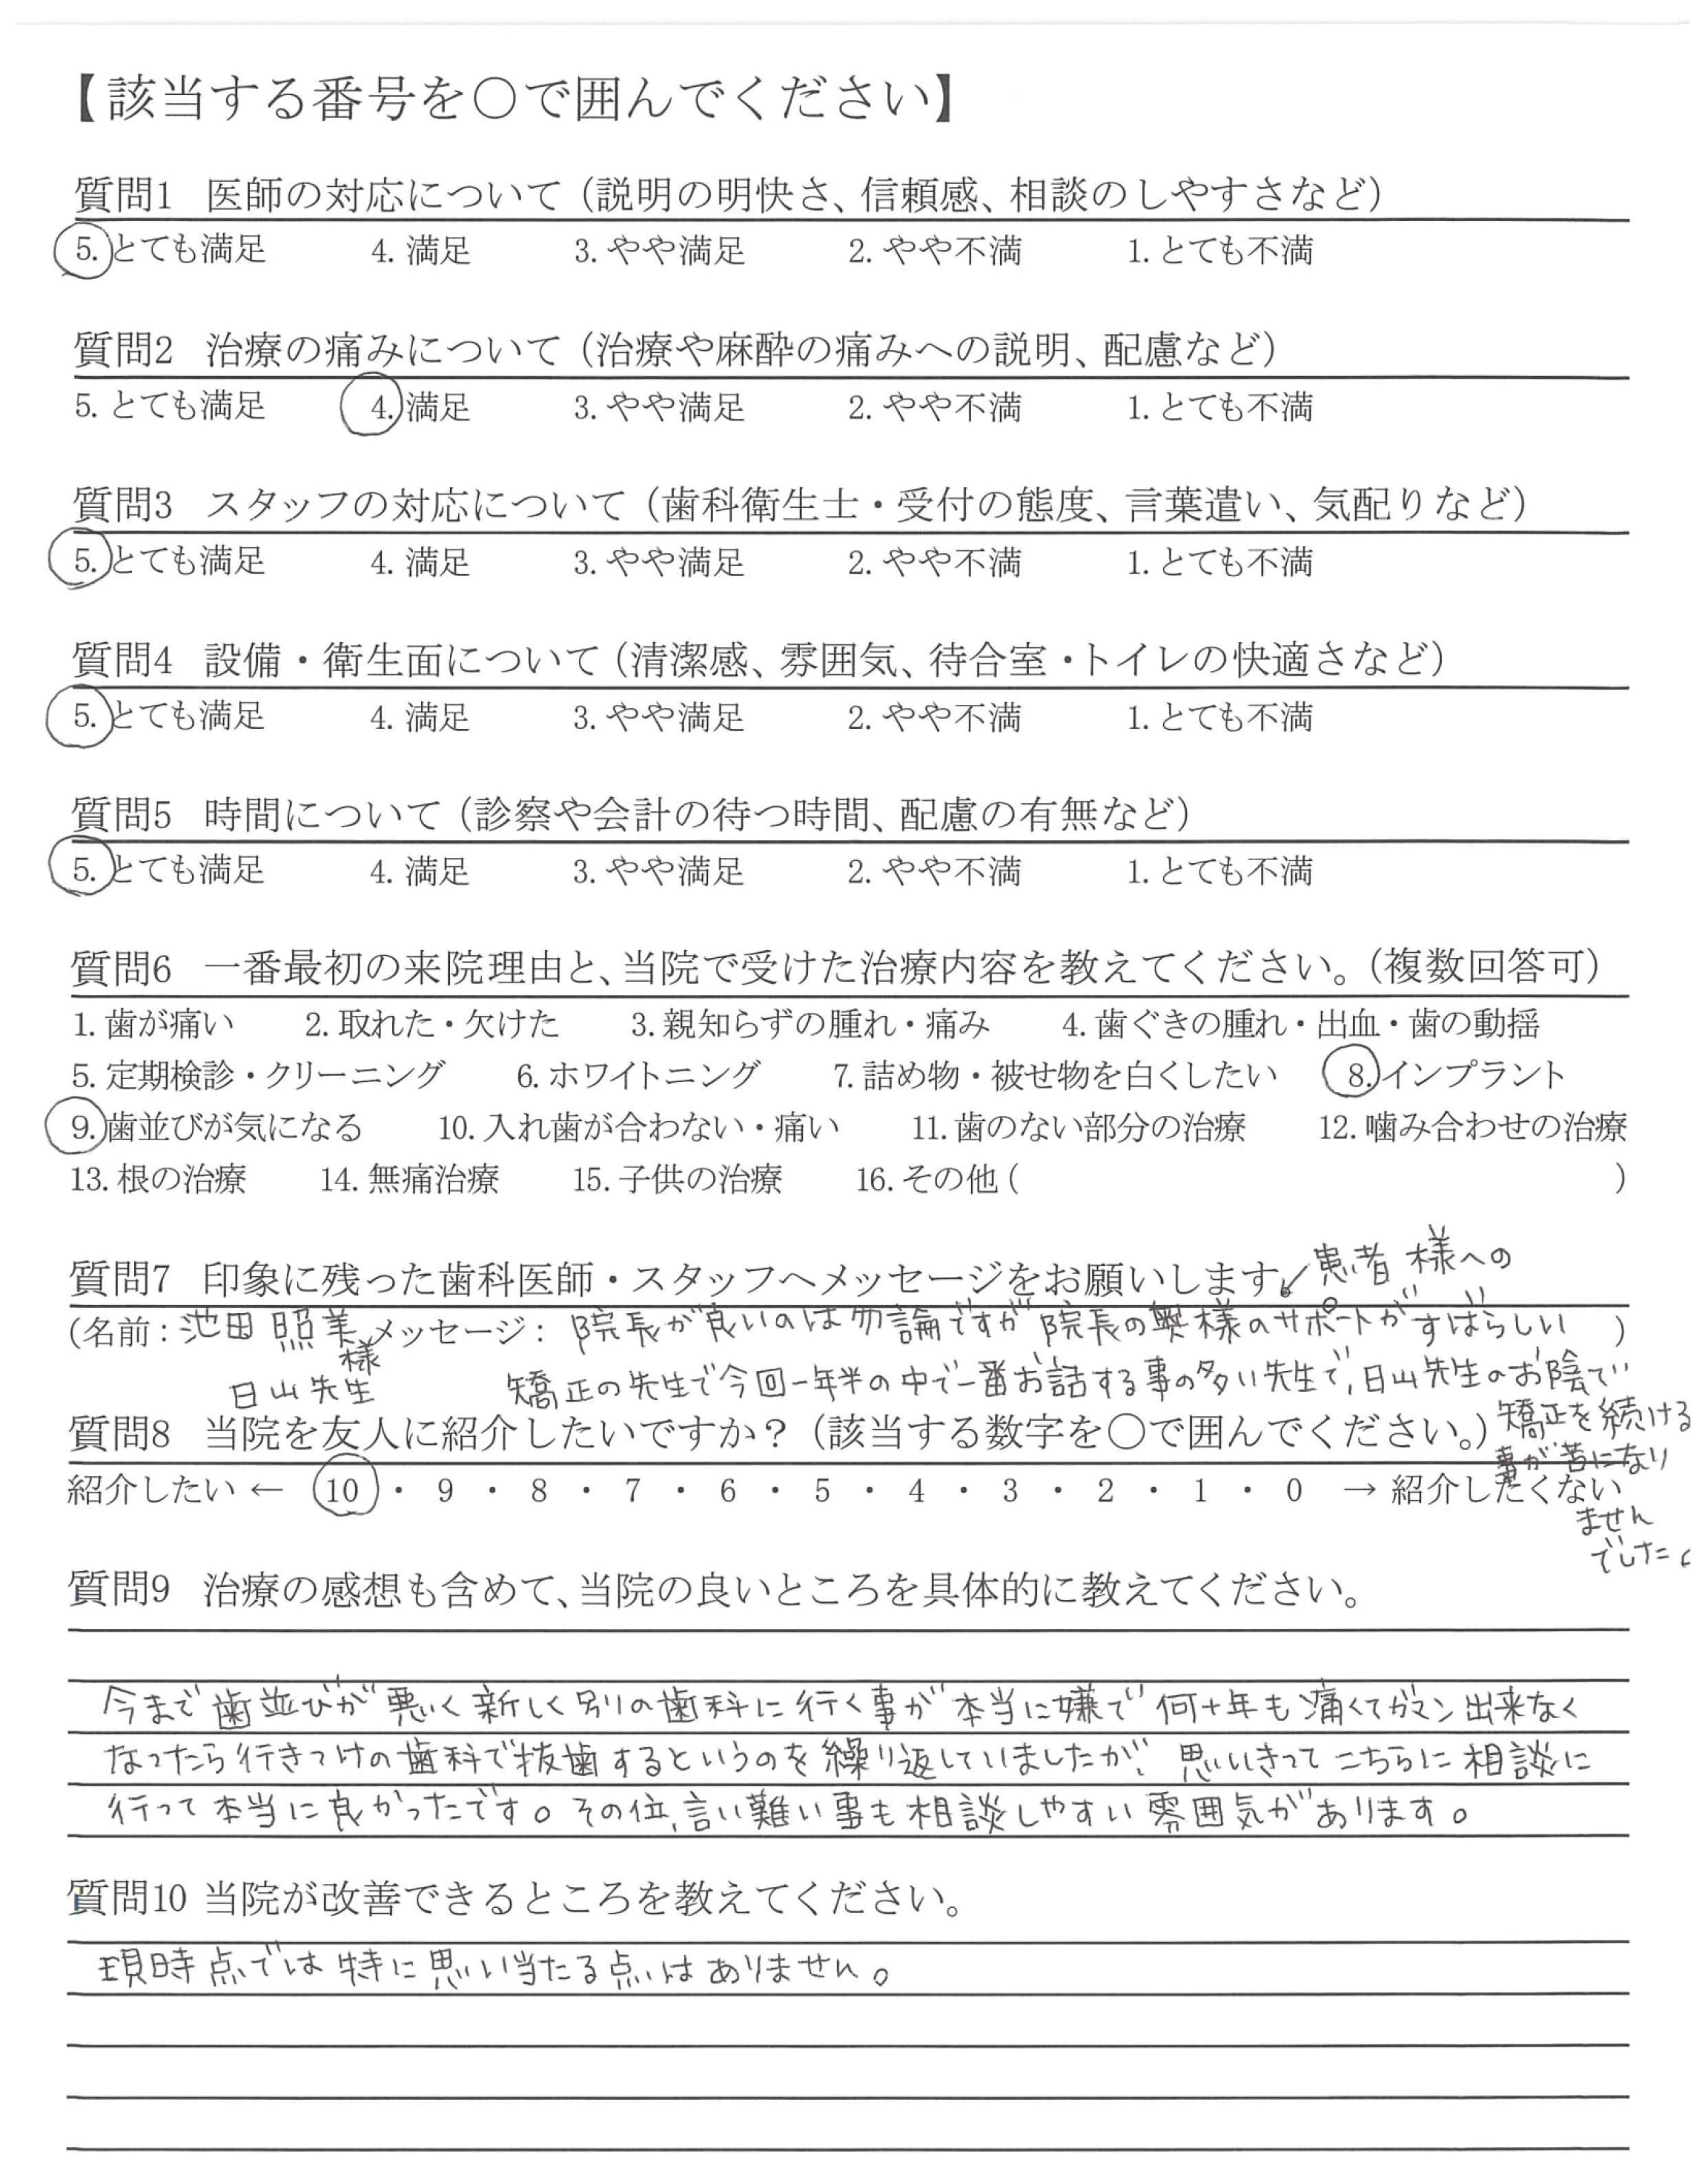 【該当する番号を○で囲んでください】
質問1 医師の対応について（説明の明快さ、信頼感、相談のしやすさなど）
5. とても満足 4. 満足 3. やや満足 2. やや不満 1. とても不満
質問2 治療の痛みについて（治療や麻酔の痛みへの説明、配慮など）
5. とても満足 4. 満足 3. やや満足 2. やや不満 1. とても不満
質問3 スタッフの対応について（歯科衛生士・受付の態度、言葉遣い、気配りなど）
5. とても満足 4. 満足 3. やや満足 2. やや不満 1. とても不満
質問4 設備・衛生面について（清潔感、雰囲気、待合室・トイレの快適さなど）
5. とても満足 4. 満足 3. やや満足 2. やや不満 1. とても不満
質問5 時間について（診察や会計の待つ時間、配慮の有無など）
5. とても満足 4. 満足 3. やや満足 2. やや不満 1. とても不満
質問6 一番最初の来院理由と、当院で受けた治療内容を教えてください。（複数回答可）
1. 歯が痛い 2. 取れた・欠けた 3. 親知らずの腫れ・痛み 4. 歯ぐきの腫れ・出血・歯の動揺
5. 定期検診・クリーニング 6. ホワイトニング 7. 詰め物・被せ物を白くしたい 8. インプラント
9. 歯並びが気になる 10. 入れ歯が合わない・痛い 11. 歯のない部分の治療 12. 噛み合わせの治療
13. 根の治療 14. 無痛治療 15. 子供の治療 16. その他 ( )
質問7 印象に残った歯科医師・スタッフへメッセージをお願いします。
患者様への
(名前 : 池田 照美様 メッセージ : 院長が良いのは勿論ですが院長の奥様のサポートがすばらしい )
日山先生 矯正の先生で今回一年半の中で一番お話する事の多い先生で、日山先生のお陰で
矯正を続ける
事が苦になり
ません
でした。
質問8 当院を友人に紹介したいですか？（該当する数字を○で囲んでください。）
紹介したい ← 10 ・ 9 ・ 8 ・ 7 ・ 6 ・ 5 ・ 4 ・ 3 ・ 2 ・ 1 ・ 0 → 紹介したくない
質問9 治療の感想も含めて、当院の良いところを具体的に教えてください。
今まで歯並びが悪く新しく別の歯科に行く事が本当に嫌で何十年も痛くてガマン出来なく
なったら行きつけの歯科で抜歯するというのを繰り返していましたが、思いきってこちらに相談に
行って本当に良かったです。その位、言い難い事も相談しやすい雰囲気があります。
質問10 当院が改善できるところを教えてください。
現時点では特に思い当たる点はありません。